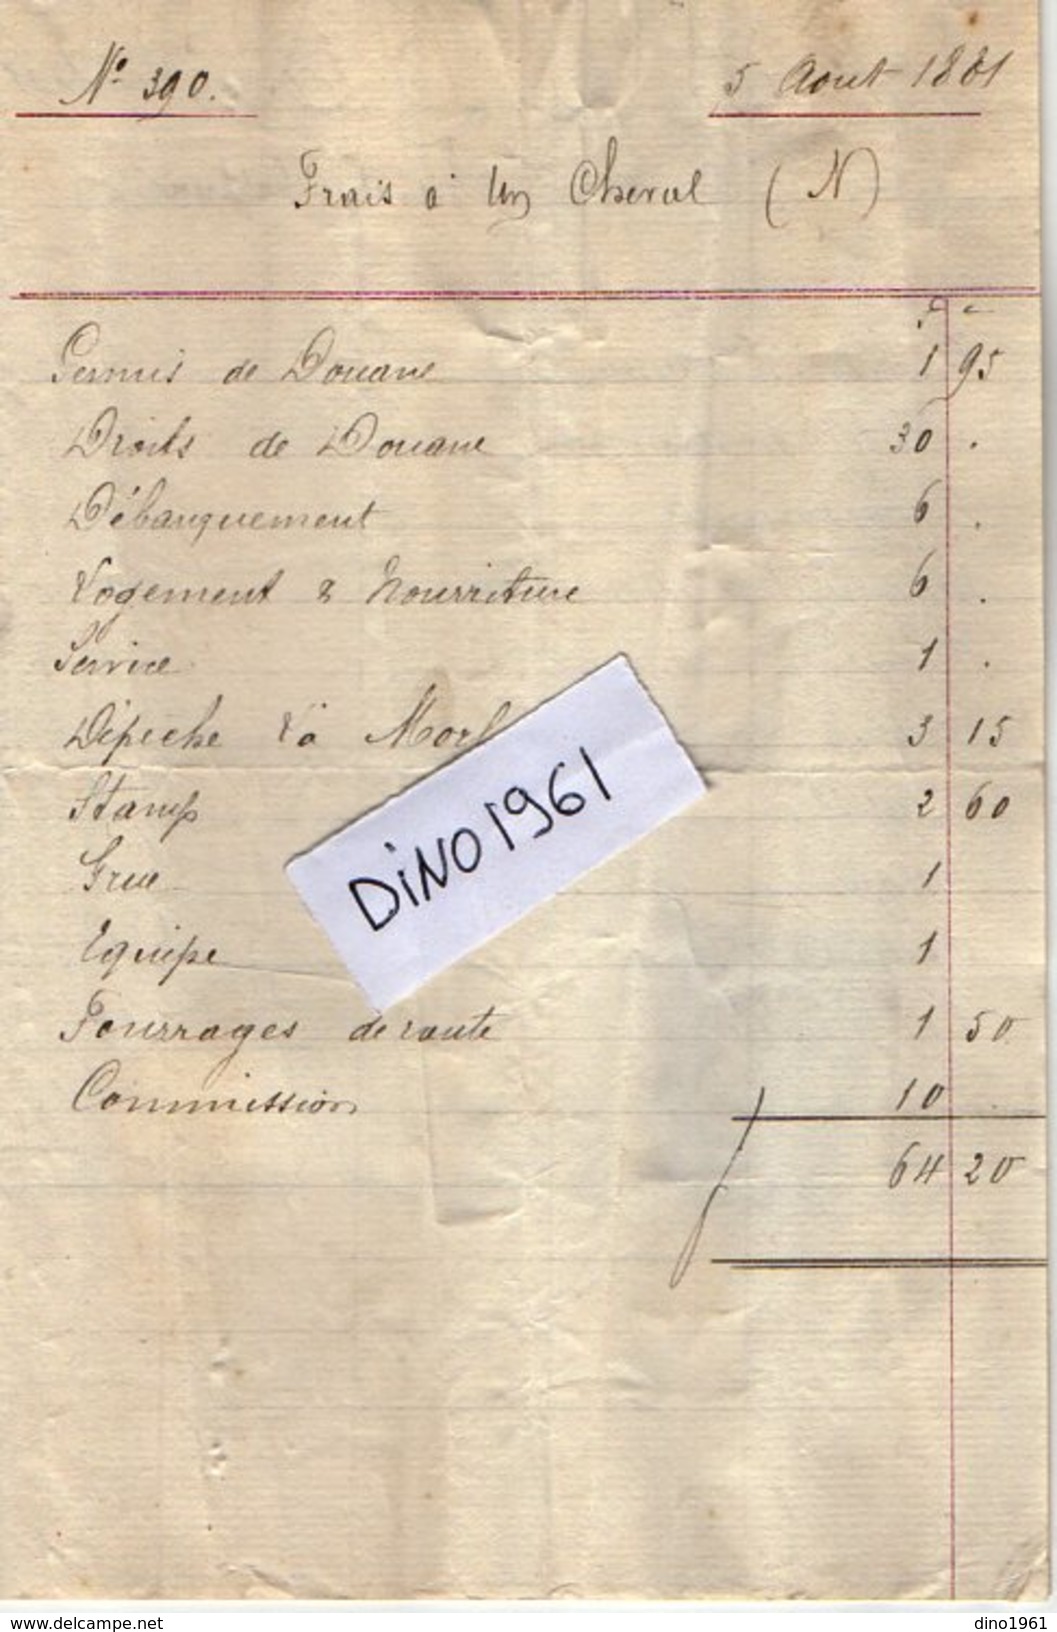 N° 390.
5 Aout 1881
Frais à Un Cheval (N)
f c
Permis de Douane 1 95
Droits de Douane 30 .
Débarquement 6 .
Logement & Nourriture 6 .
Service 1 .
Dépêche 3 15
Stamp 2 60
Grue 1
Equipe 1
Fourrages de route 1 50
Commission 10 .
64 20
DiNO1961
www.delcampe.net
dino1961